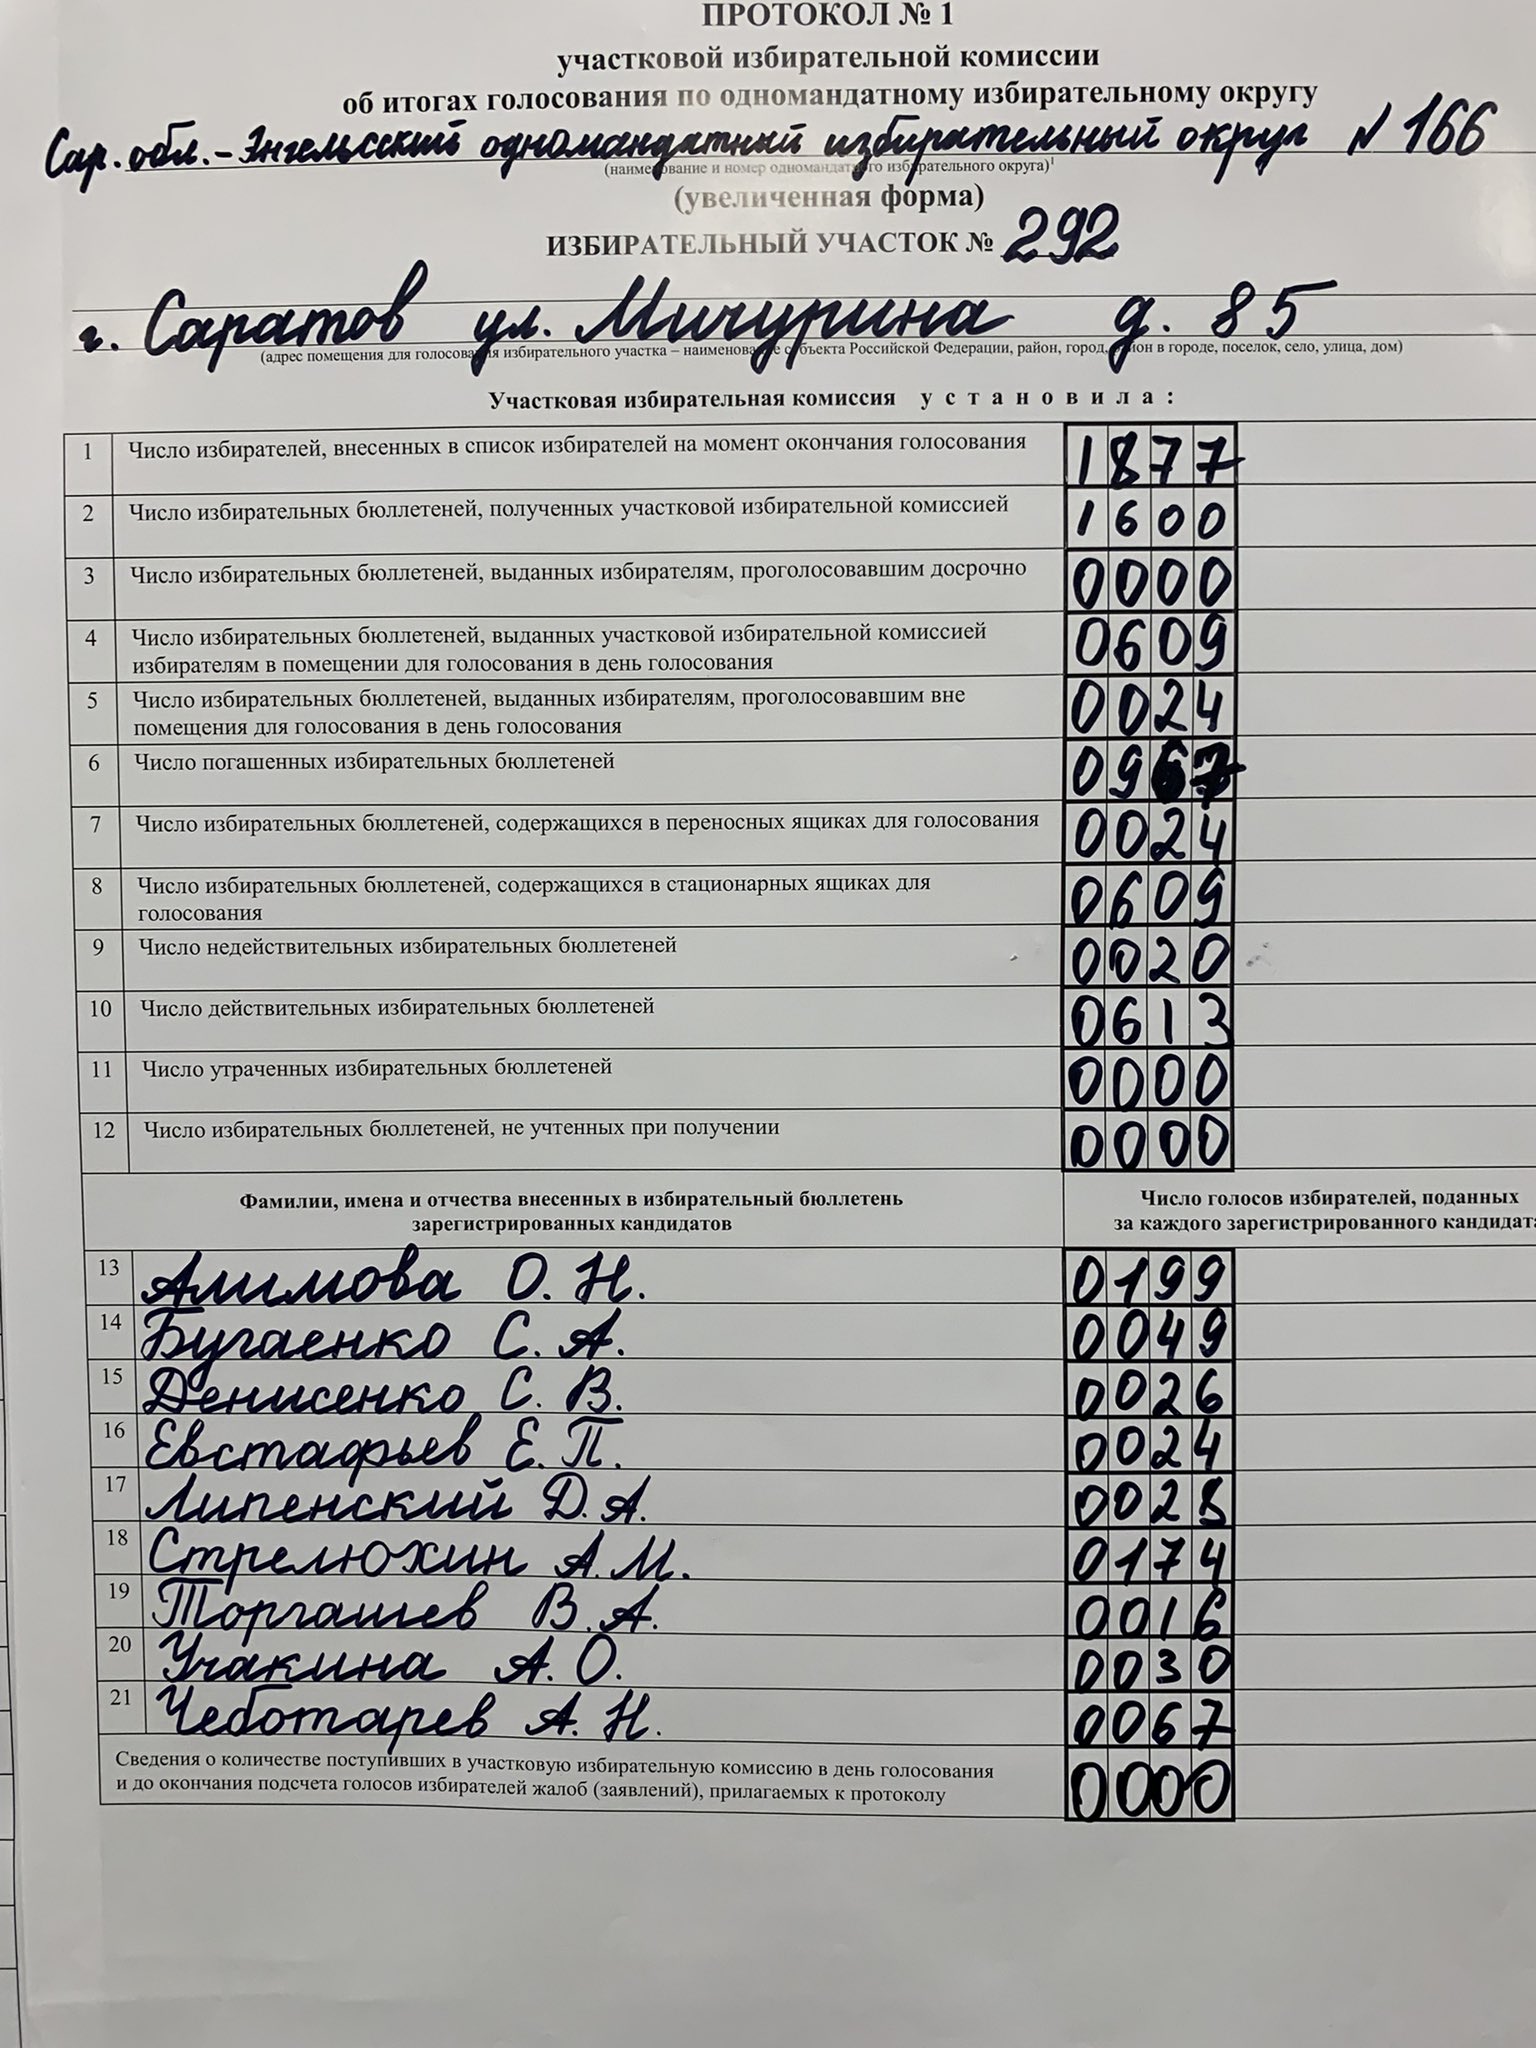 ПРОТОКОЛ № 1
участковой избирательной комиссии
об итогах голосования по одномандатному избирательному округу
Сар. обл. – Энгельсский одномандатный избирательный округ № 166
(наименование и номер одномандатного избирательного округа)1
(увеличенная форма)
ИЗБИРАТЕЛЬНЫЙ УЧАСТОК № 292
г. Саратов ул. Мичурина д. 85
(адрес помещения для голосования избирательного участка – наименование субъекта Российской Федерации, район, город, район в городе, поселок, село, улица, дом)
Участковая избирательная комиссия установила:
1 Число избирателей, внесенных в список избирателей на момент окончания голосования 1877
2 Число избирательных бюллетеней, полученных участковой избирательной комиссией 1600
3 Число избирательных бюллетеней, выданных избирателям, проголосовавшим досрочно 0000
4 Число избирательных бюллетеней, выданных участковой избирательной комиссией
избирателям в помещении для голосования в день голосования 0609
5 Число избирательных бюллетеней, выданных избирателям, проголосовавшим вне
помещения для голосования в день голосования 0024
6 Число погашенных избирательных бюллетеней 0967
7 Число избирательных бюллетеней, содержащихся в переносных ящиках для голосования 0024
8 Число избирательных бюллетеней, содержащихся в стационарных ящиках для
голосования 0609
9 Число недействительных избирательных бюллетеней 0020
10 Число действительных избирательных бюллетеней 0613
11 Число утраченных избирательных бюллетеней 0000
12 Число избирательных бюллетеней, не учтенных при получении 0000
Фамилии, имена и отчества внесенных в избирательный бюллетень
зарегистрированных кандидатов
Число голосов избирателей, поданных
за каждого зарегистрированного кандидата
13 Алимова О. Н. 0199
14 Бугаенко С. А. 0049
15 Денисенко С. В. 0026
16 Евстафьев Е. П. 0024
17 Липенский Д. А. 0028
18 Стрелюхин А. М. 0174
19 Торгашев В. А. 0016
20 Учакина А. О. 0030
21 Чеботарев А. Н. 0067
Сведения о количестве поступивших в участковую избирательную комиссию в день голосования
и до окончания подсчета голосов избирателей жалоб (заявлений), прилагаемых к протоколу 0000